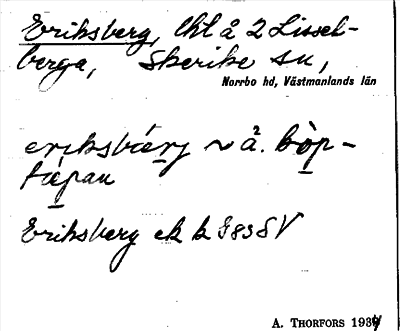 Eriksberg, lht å 2 Lissel-
berga, Skerike sn,
Norrbo hd, Västmanlands län
eriksbærj ~ å. bòp-
tápan
Eriksberg ek k J 83 SV
A. THORFORS 1934